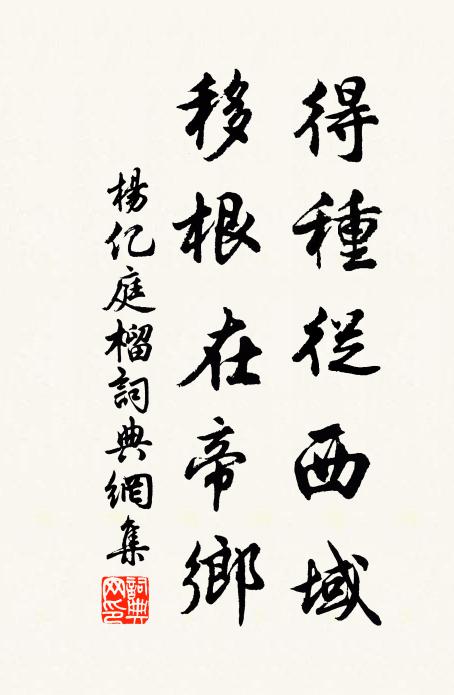 得種從西域
移根在帝鄉
楊億庭榴詞典網集
詞典網印